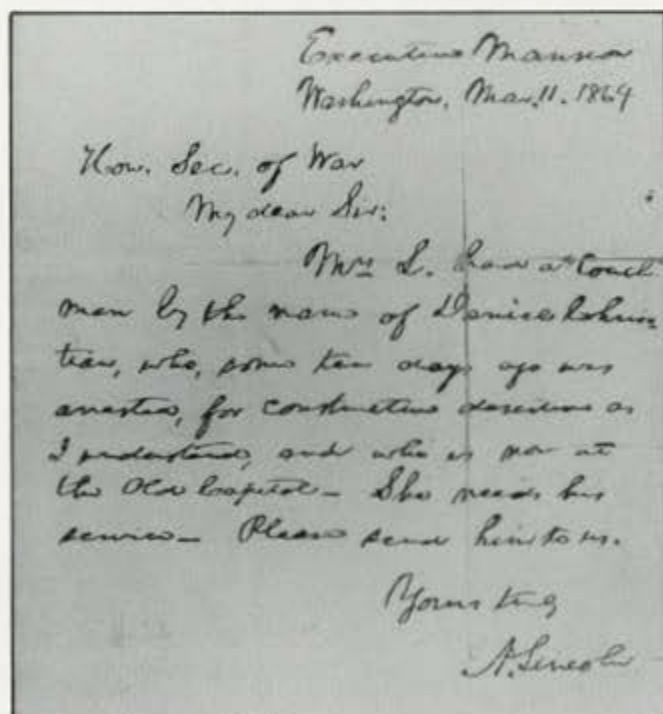 Executive Mansion
Washington, Mar. 11. 1864
Hon. Sec. of War
My dear Sir:
Mrs L. had a Coach
man by the name of Daniel Chris
tian, who, some ten days ago was
arrested, for constructive desertion as
I understand, and who is now at
the Old Capitol— She needs his
service— Please send him to us.
Yours truly
A. Lincoln